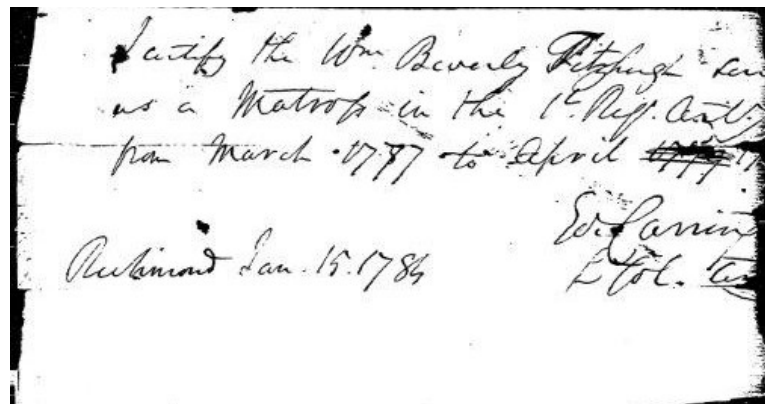 I certify the Wm. Beverly Fitzhugh
as a Matross in the 1t. Reg. Art.
from March 1777 to April
Ed. Carrin
Richmond Jan. 15. 1784
L Col.